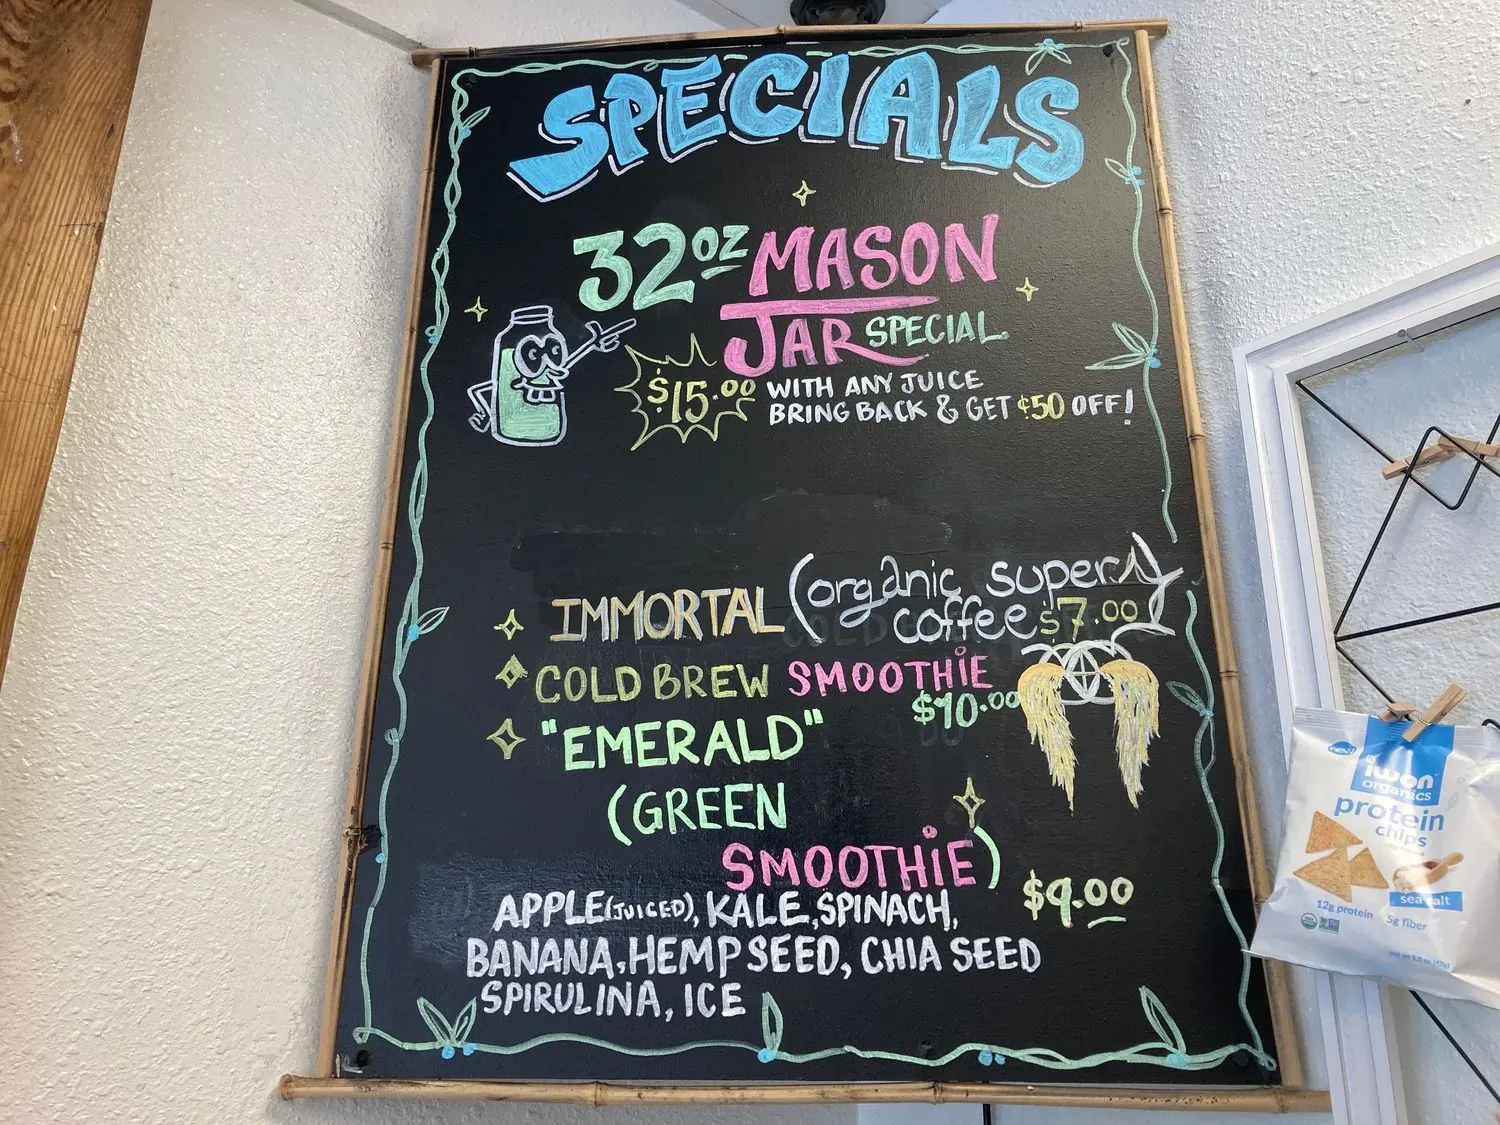 SPECIALS
32oz MASON
JAR SPECIAL
$15.00 WITH ANY JUICE
BRING BACK & GET ¢50 OFF!
IMMORTAL (organic super
coffee $7.00)
COLD BREW SMOOTHIE
$10.00
"EMERALD"
(GREEN
SMOOTHIE)
$9.00
APPLE(JUICED), KALE, SPINACH,
BANANA, HEMP SEED, CHIA SEED
SPIRULINA, ICE
new
iwon
organics
protein
chips
sea salt
12g protein
5g fiber